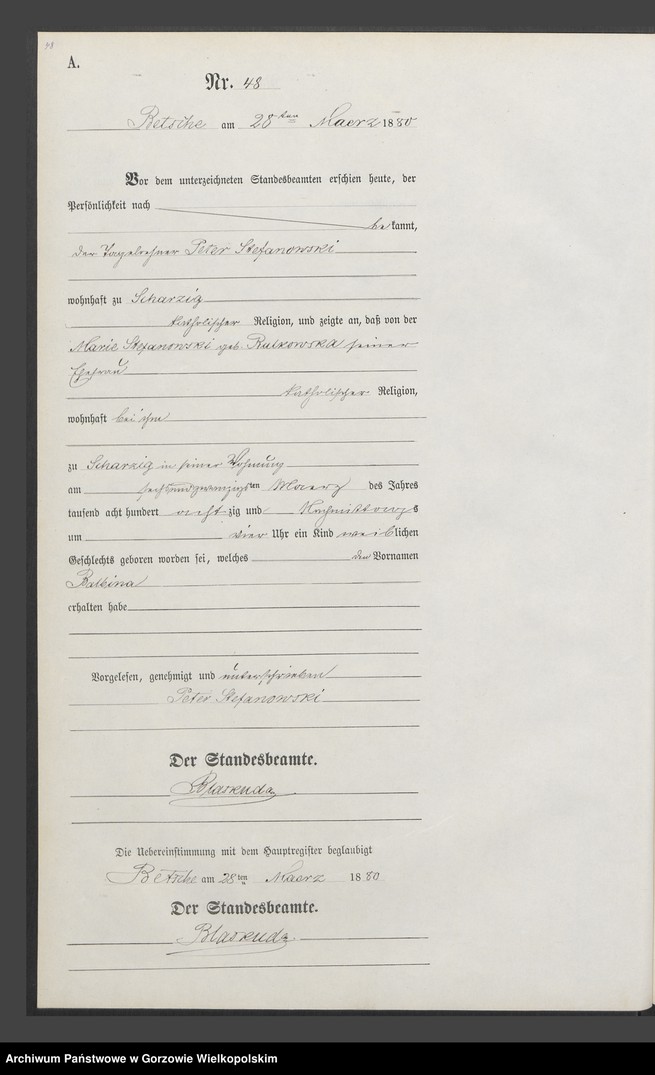 48
A.
Nr. 48
Betsche am 28ten Maerz 1880
Vor dem unterzeichneten Standesbeamten erschien heute, der
Persönlichkeit nach
bekannt,
der Tagelöhner Peter Stefanowski
wohnhaft zu Scharzig
katholischer Religion, und zeigte an, daß von der
Marie Stefanowski geb. Ratkowska seiner
Ehefrau
katholischer Religion,
wohnhaft bei ihm
zu Scharzig in seiner Wohnung
am sechsundzwanzigsten Maerz des Jahres
tausend acht hundert achtzig und Nachmittags
um vier Uhr ein Kind weiblichen
Geschlechts geboren worden sei, welches den Vornamen
Balbina
erhalten habe
Vorgelesen, genehmigt und unterschrieben
Peter Stefanowski
Der Standesbeamte.
Die Uebereinstimmung mit dem Hauptregister beglaubigt
Betsche am 28ten Maerz 1880
Der Standesbeamte.
Archiwum Państwowe w Gorzowie Wielkopolskim